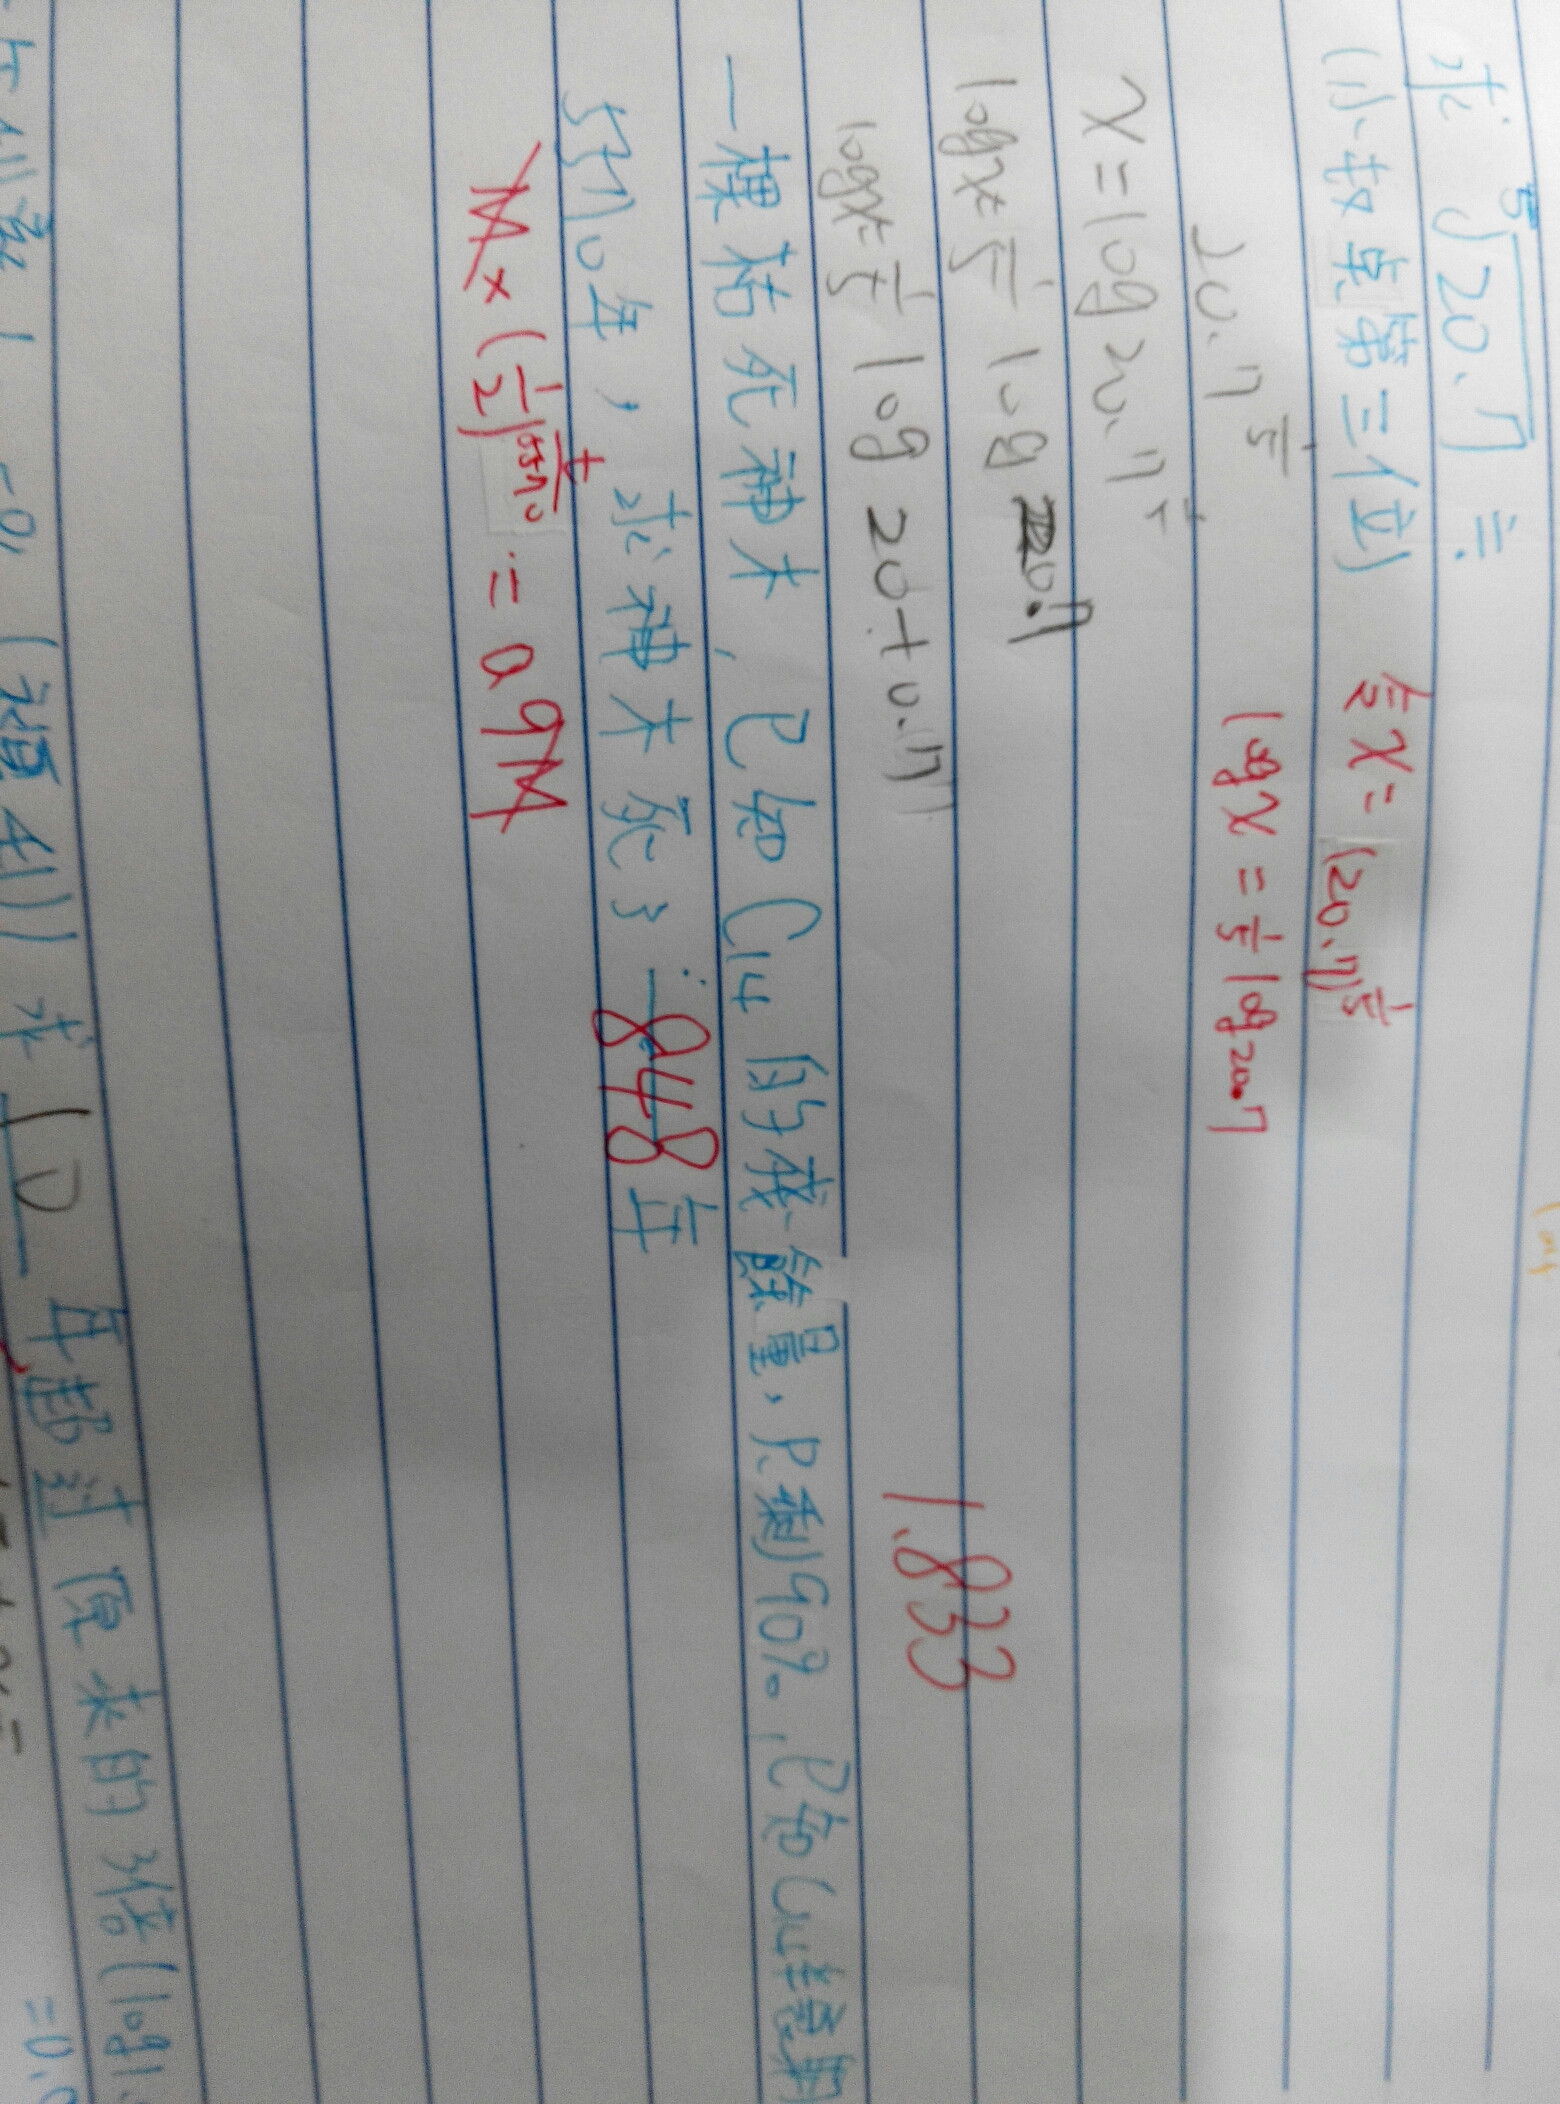 求 ⁵√20.7 ≒
(小数点第三位) 令x=(20.7)^1/5
20.7^1/5 logx = 1/5 log20.7
x=log20.7^1/5
logx=1/5 log 20.7
logx=1/5 log 20+0.7 1.833
一棵枯死神木,已知C14的殘餘量,只剩90%,已知C14半衰期
5570年,求神木死了≒848年
M×(1/2)^t/5570 = 0.9M
10 年超過原來的3倍(log1.
=0.0